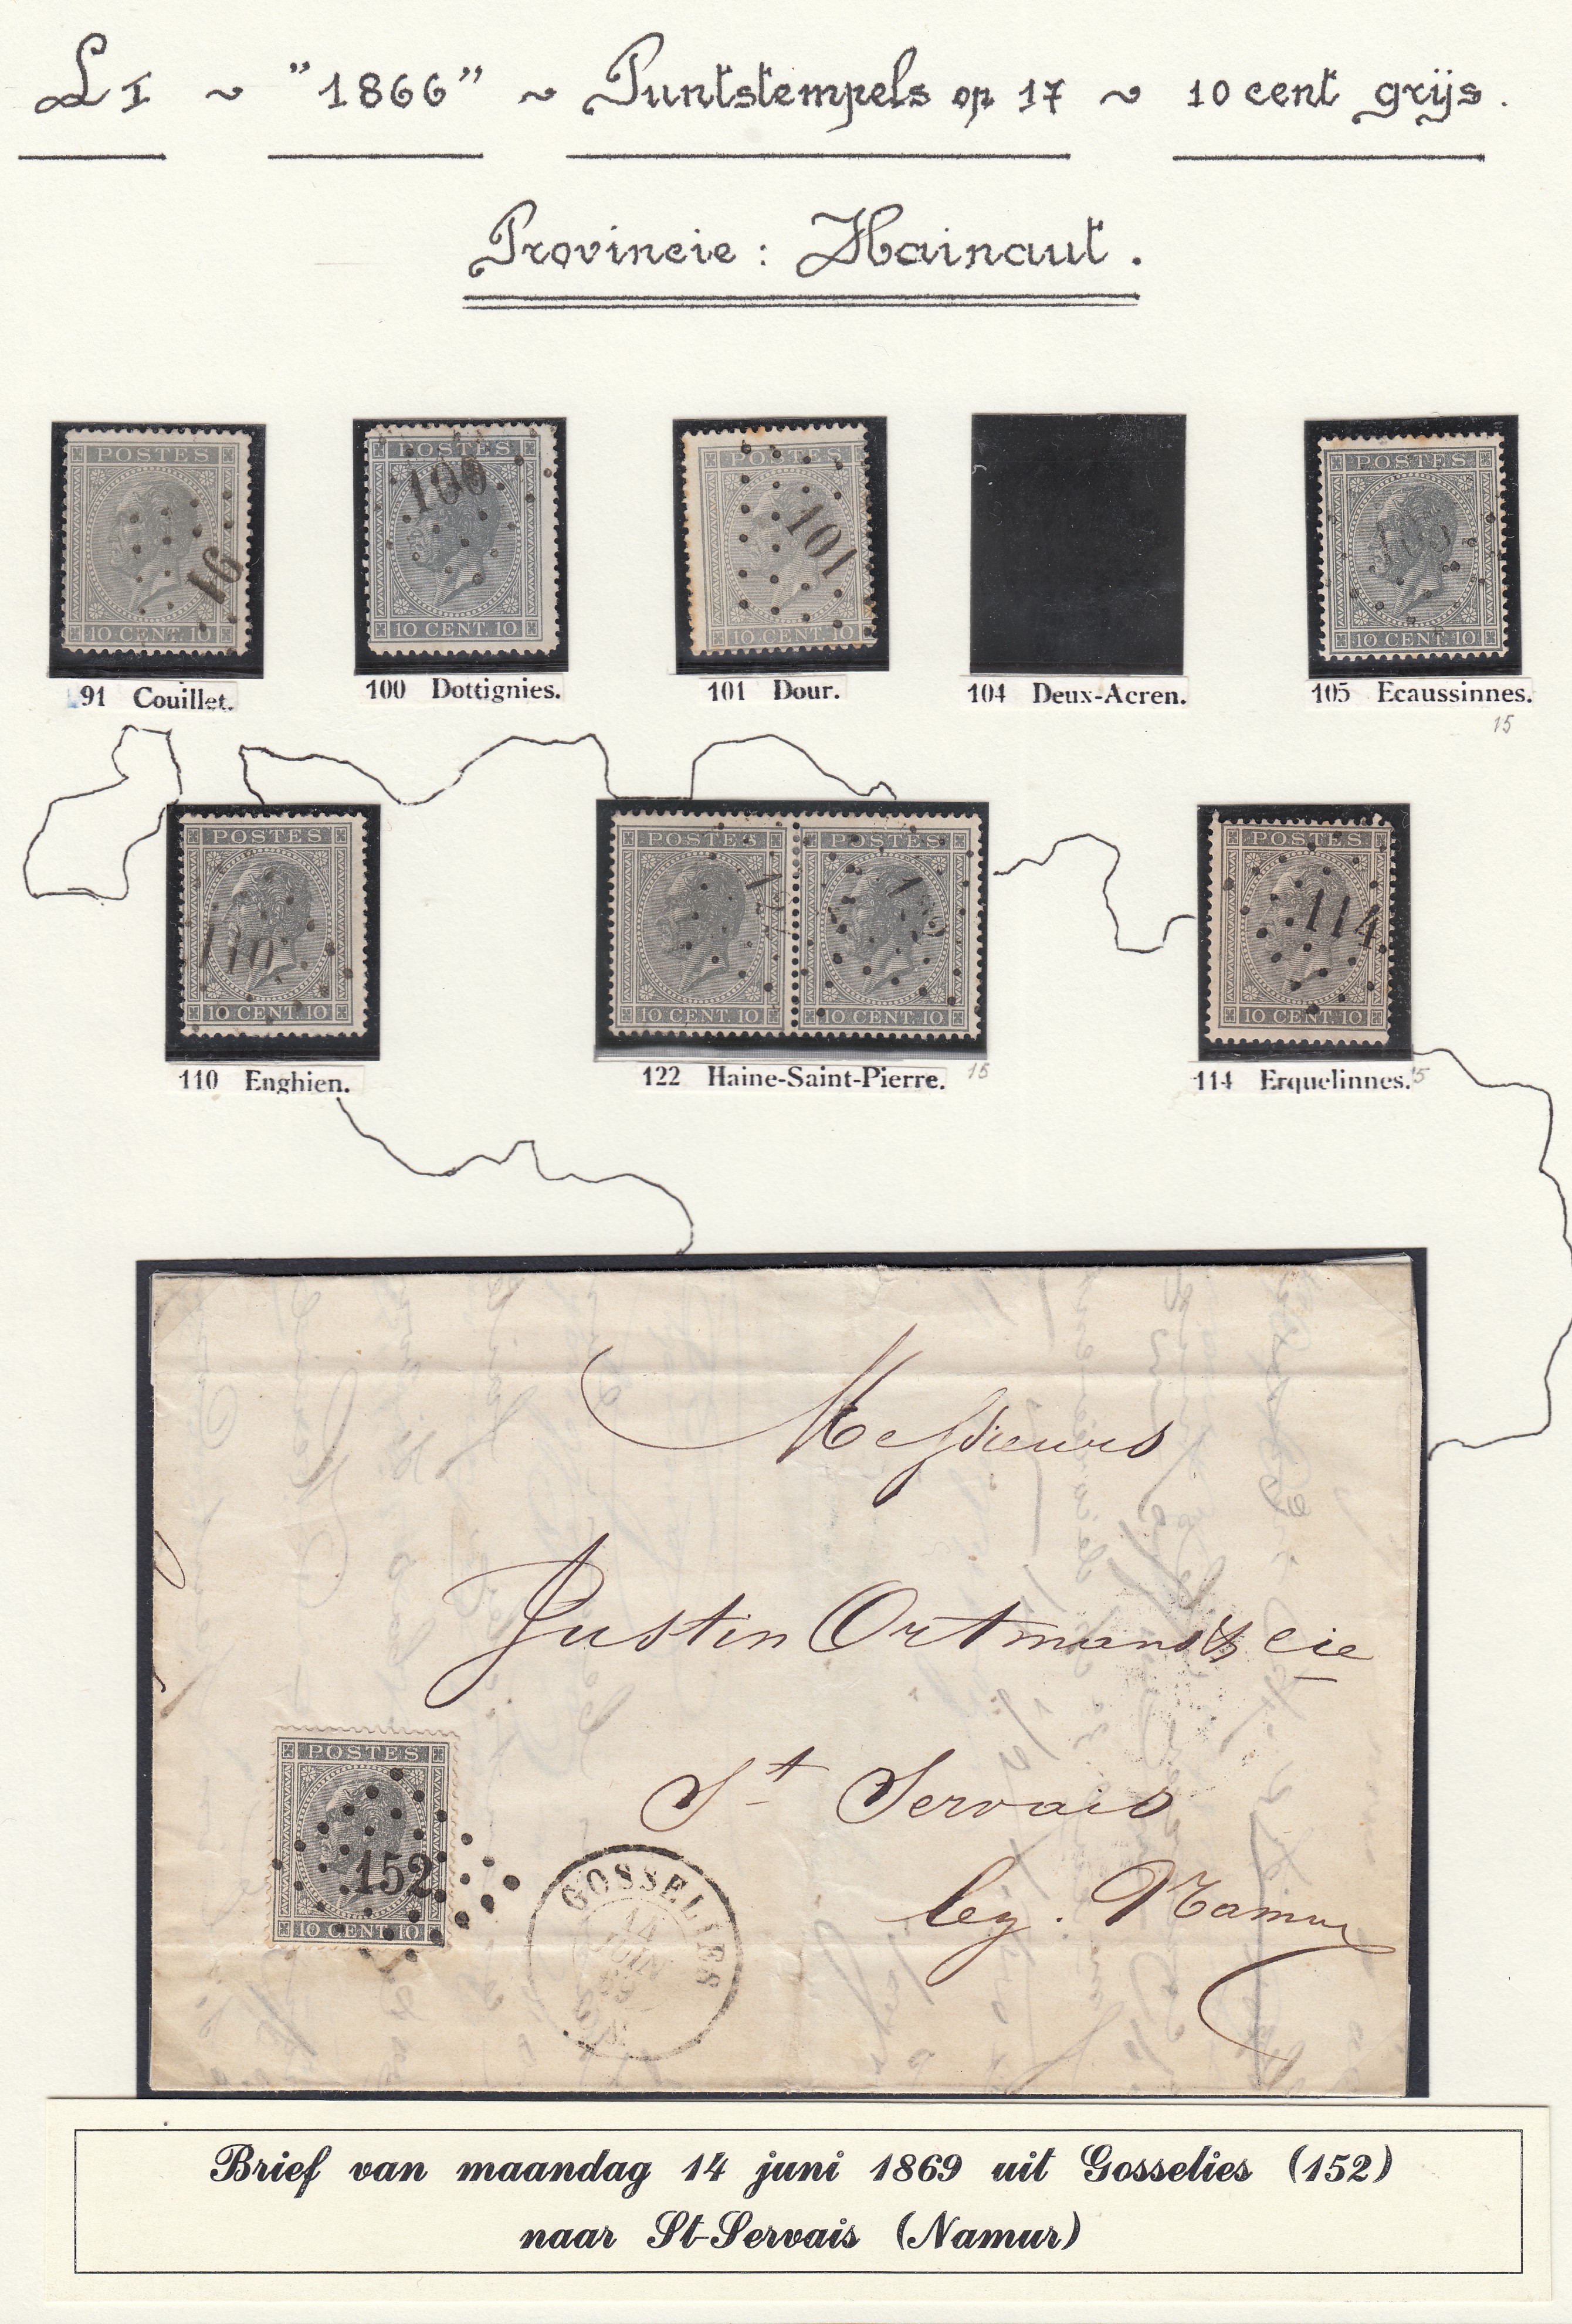 LI ~ "1866" ~ Puntstempels op 17 ~ 10 cent grijs.
Provincie: Hainaut.
POSTES
91
10 CENT. 10
91 Couillet.
POSTES
100
10 CENT. 10
100 Dottignies.
POSTES
101
10 CENT. 10
101 Dour.
104 Deux-Acren.
POSTES
105
10 CENT. 10
105 Ecaussinnes.
15
POSTES
110
10 CENT. 10
110 Enghien.
POSTES
122
10 CENT. 10
POSTES
122
10 CENT. 10
122 Haine-Saint-Pierre.
15
POSTES
114
10 CENT. 10
114 Erquelinnes.
15
Messieurs
Justin Ortmans & Cie
St Servais
lez. Namur
POSTES
152
10 CENT. 10
GOSSELIES
14
JUIN
Brief van maandag 14 juni 1869 uit Gosselies (152)
naar St-Servais (Namur)